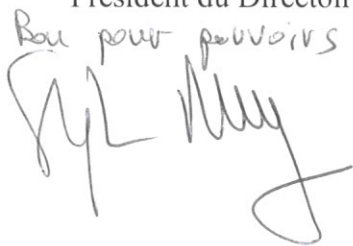 Président du Directoi
Bon pour pouvoirs